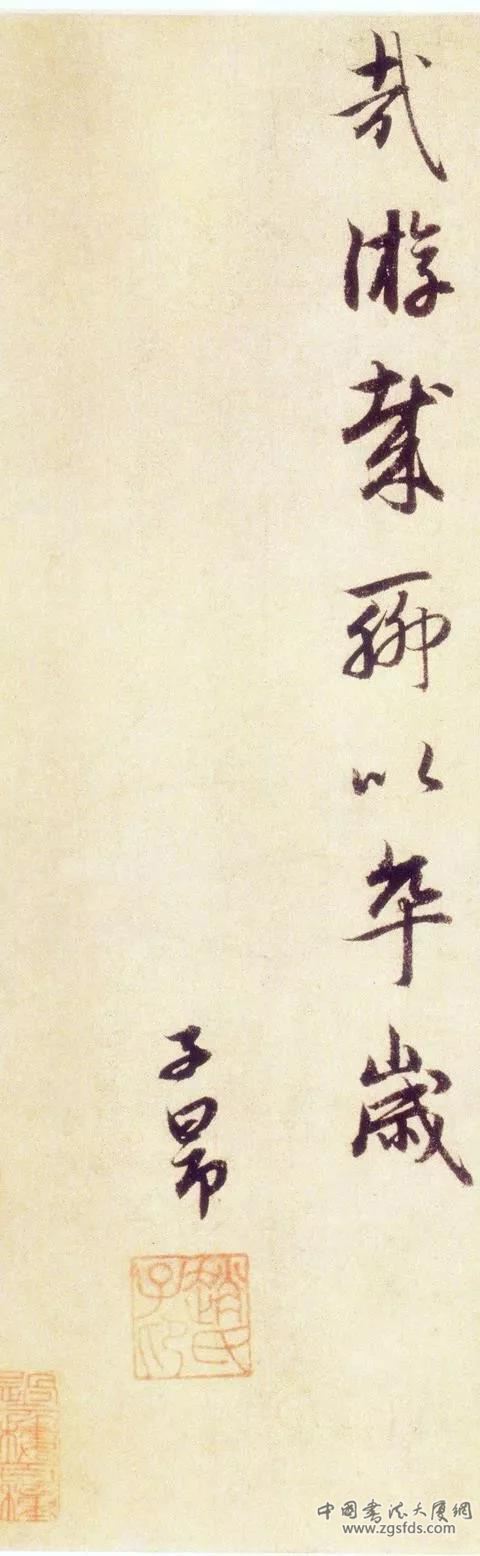 哉游哉聊以卒歲
子昂
趙氏子昂
中國書法大廈網
www.zgsfds.com